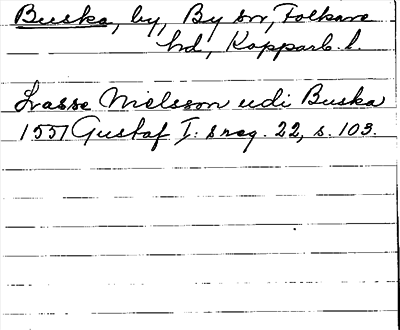 Buska, by, By sn, Folkare
hd, Kopparb. l.
Lasse Nielsson udi Buska
1551 Gustaf I: s reg. 22, s. 103.